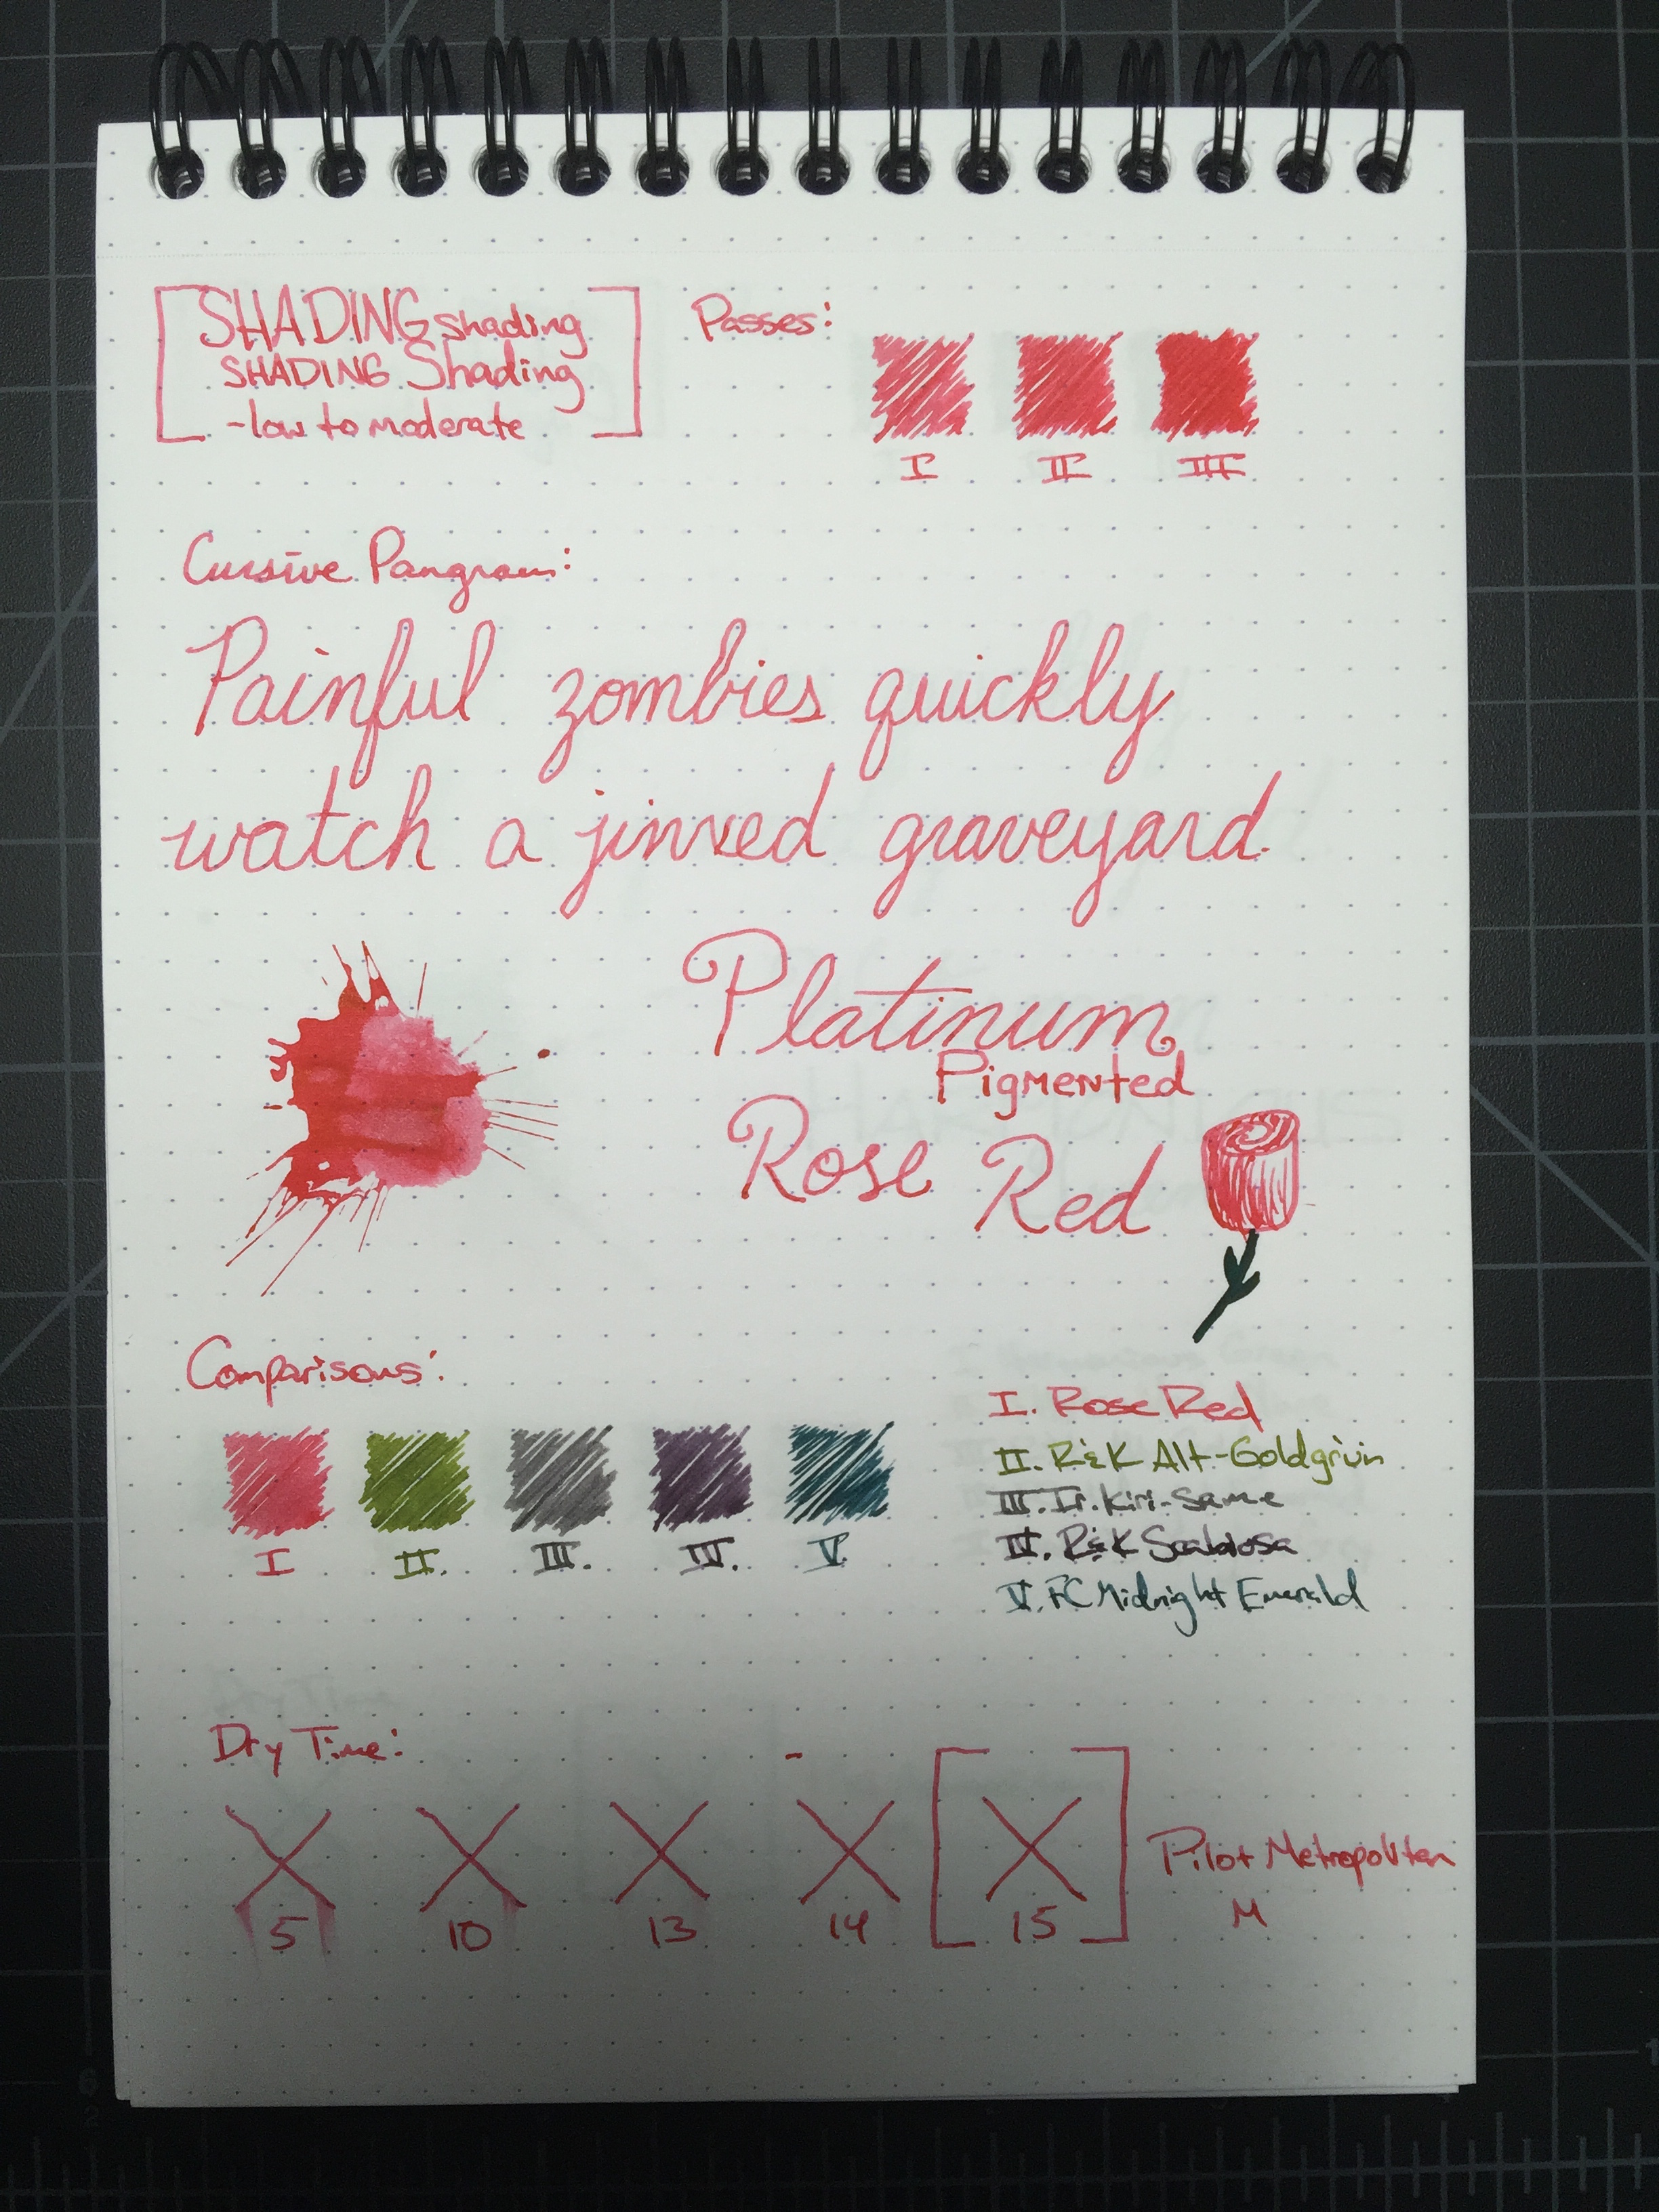 SHADING shading
SHADING Shading
-low to moderate
Passes:
I II III
Cursive Pangram:
Painful zombies quickly
watch a jinxed graveyard.
Platinum
Pigmented
Rose Red
Comparisons:
I II. III. IV. V.
I. Rose Red
II. R&K Alt-Goldgrün
III. Ir. Kiri-Same
IV. R&K Scabiosa
V. FC Midnight Emerald
Dry Time:
5 10 13 14 15
Pilot Metropolitan
M